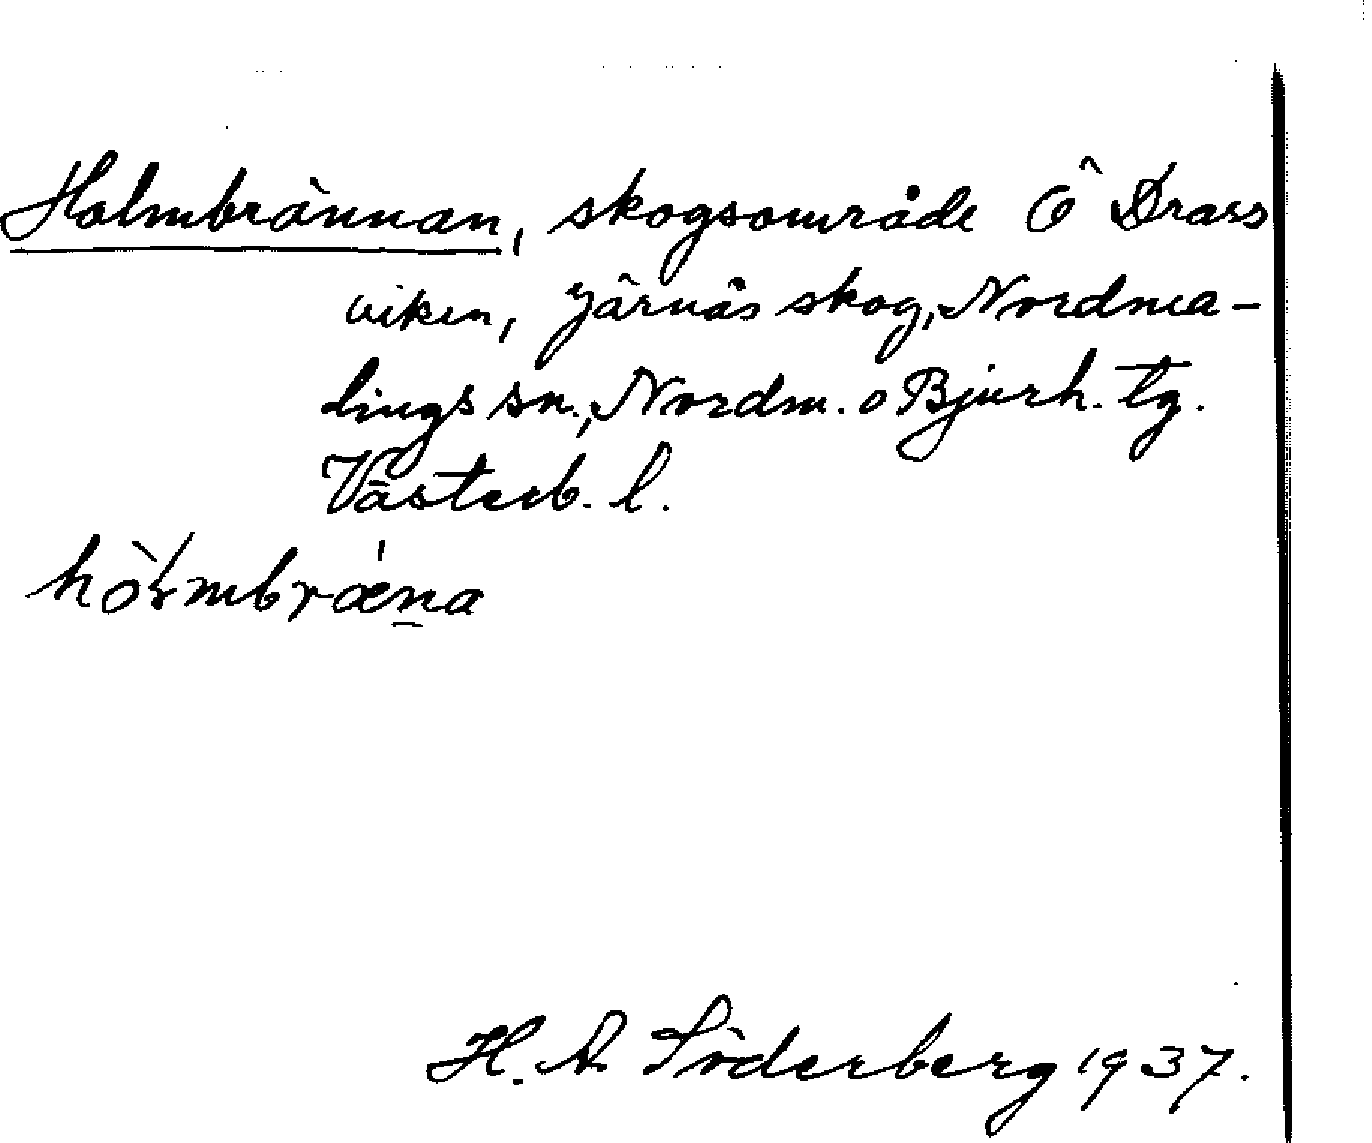 Holmbrännan, skogsområde Ö Drass
viken, Järnäs skog, Nordma-
lings sn., Nordm. o Bjurh. tg.
Västerb. l.
H. A. Söderberg 1937.